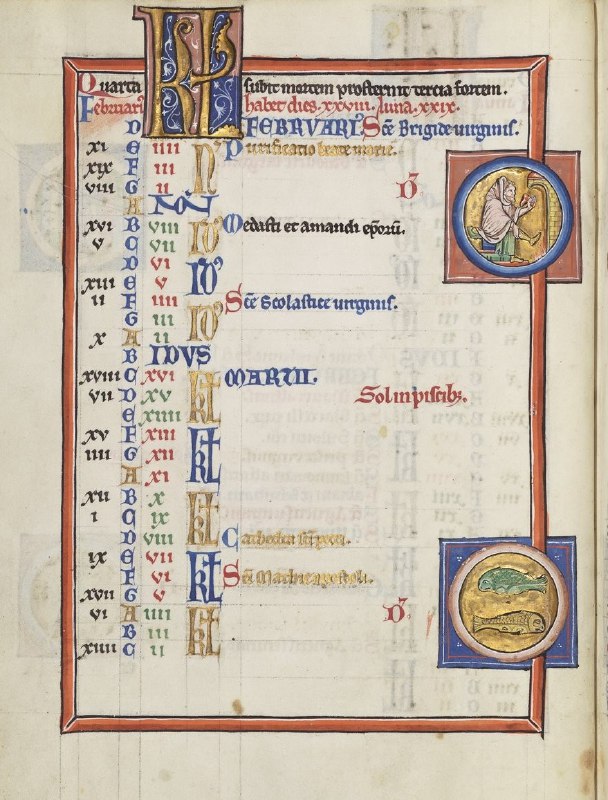 Quarta KL subit mortem prosternit tercia fortem.
Februari' habet dies .xxviii. luna .xxix.
D FEBRVARI' Sce Brigide uirginis.
xi E iiii N' Purificatio beate marie.
xix F iii
viii G ii D'
A NON
xvi B viii ID' Vedasti et amandi epo℞.
v C vii
D vi ID'
xiii E v
ii F iiii ID' Sce Scolastice uirginis.
G iii
x A ii
B IDVS
xviii C xvi kł MARTII.
vii D xv Sol in piscib;.
E xiiii
xv F xiii kł
iiii G xii
A xi
xii B x kł
i C ix
D viii Cathedra sci petri.
ix E vii kł
F vi Sci Mathie apostoli.
xvii G v
vi A iiii kł D'
B iii
xiiii C ii